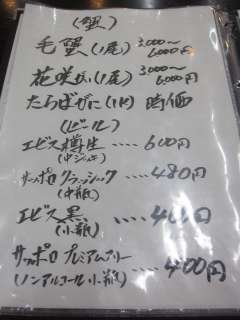 (蟹)
毛蟹(1尾) 3,000〜6,000円
花咲がに(1尾) 3,000〜6,000円
たらばがに(1肩) 時価
(ビール)
エビス樽生 ‥‥ 600円
(中ジョッキ)
サッポロクラッシック ‥‥ 480円
(中瓶)
エビス黒 ‥‥ 400円
(小瓶)
サッポロプレミアムアルコールフリー
(ノンアルコール小瓶) ‥‥ 400円